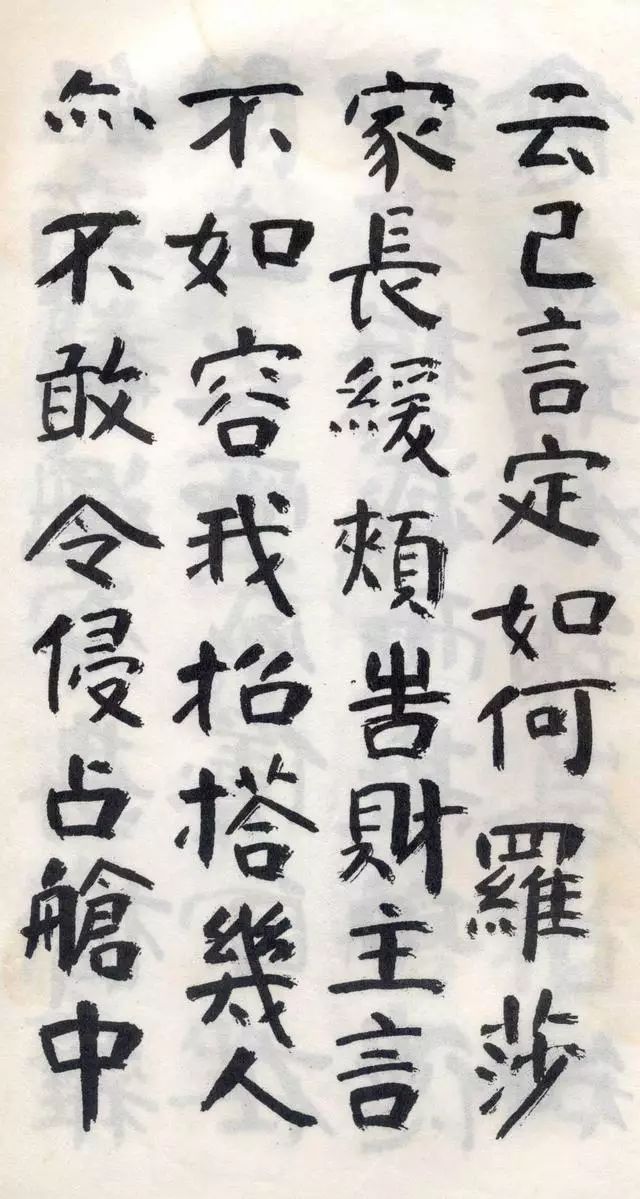 云已言定如何羅莎
家長緩頰告財主言
不如容我招搭幾人
亦不敢令侵占艙中